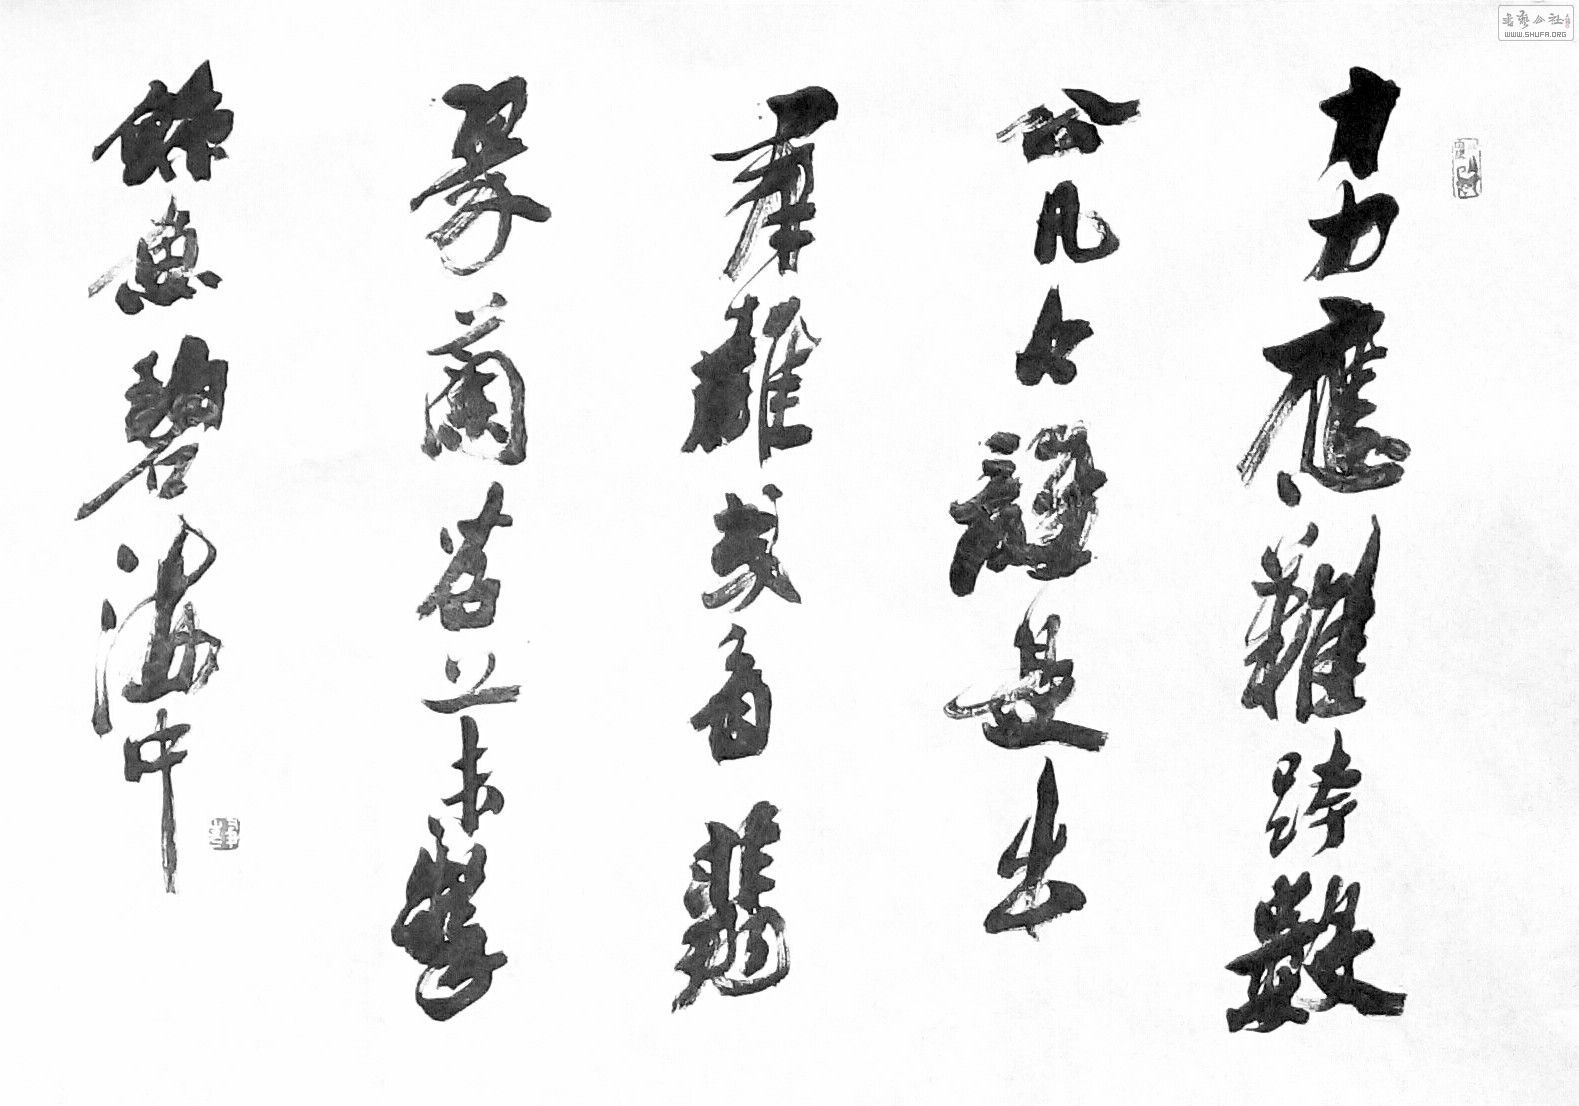 才力應難跨數
公凡今誰是出
群雄或看翡
翠蘭苕上未掣
鯨魚碧海中
書艺公社
WWW.SHUFA.ORG